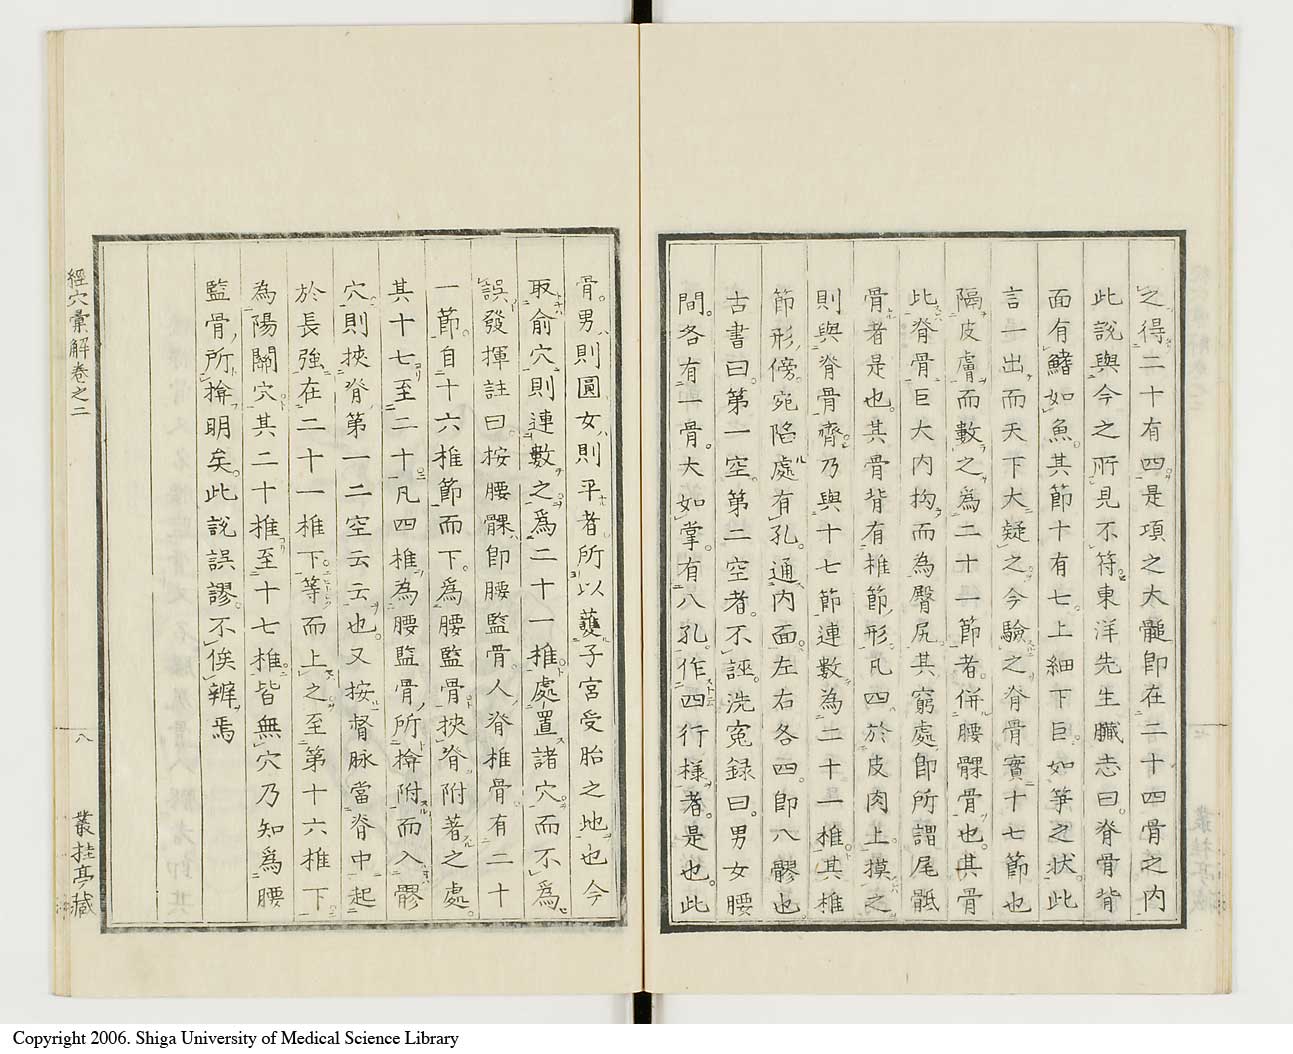 之得二十有四是項之大髓卽在二十四骨之內
此說與今之所見不符東洋先生臟志曰脊骨背
面有鰭如魚其節十有七上細下巨如筝之狀此
言一出而天下大疑之今驗之脊骨實十七節也
隔皮膚而數之為二十一節者併腰髁骨也其骨
此脊骨巨大內抅而為臀尻其窮處卽所謂尾骶
骨者是也其骨背有椎節形凡四於皮肉上摸之
則與脊骨齊乃與十七節連數為二十一椎其椎
節形傍宛陷處有孔通內面左右各四卽八髎也
古書曰第一空第二空者不誣洗冤録曰男女腰
間各有一骨大如掌有八孔作四行樣者是也此
骨男則圓女則平者所以蘷子宮受胎之地也今
取俞穴則連數之爲二十一椎處置諸穴而不爲
誤發揮註曰按腰髁卽腰監骨人脊椎骨有二十
一節自十六椎節而下爲腰監骨挾脊附著之處
其十七至二十凡四椎為腰監骨所揜附而入髎
穴則挾脊第一二空云云也又按督脉當脊中起
於長強在二十一椎下等而上之至第十六椎下
為陽關穴其二十椎至十七椎皆無穴乃知爲腰
監骨所揜明矣此說誤謬不俟辨焉
經穴彙解卷之二
八
叢桂亭藏
Copyright 2006. Shiga University of Medical Science Library